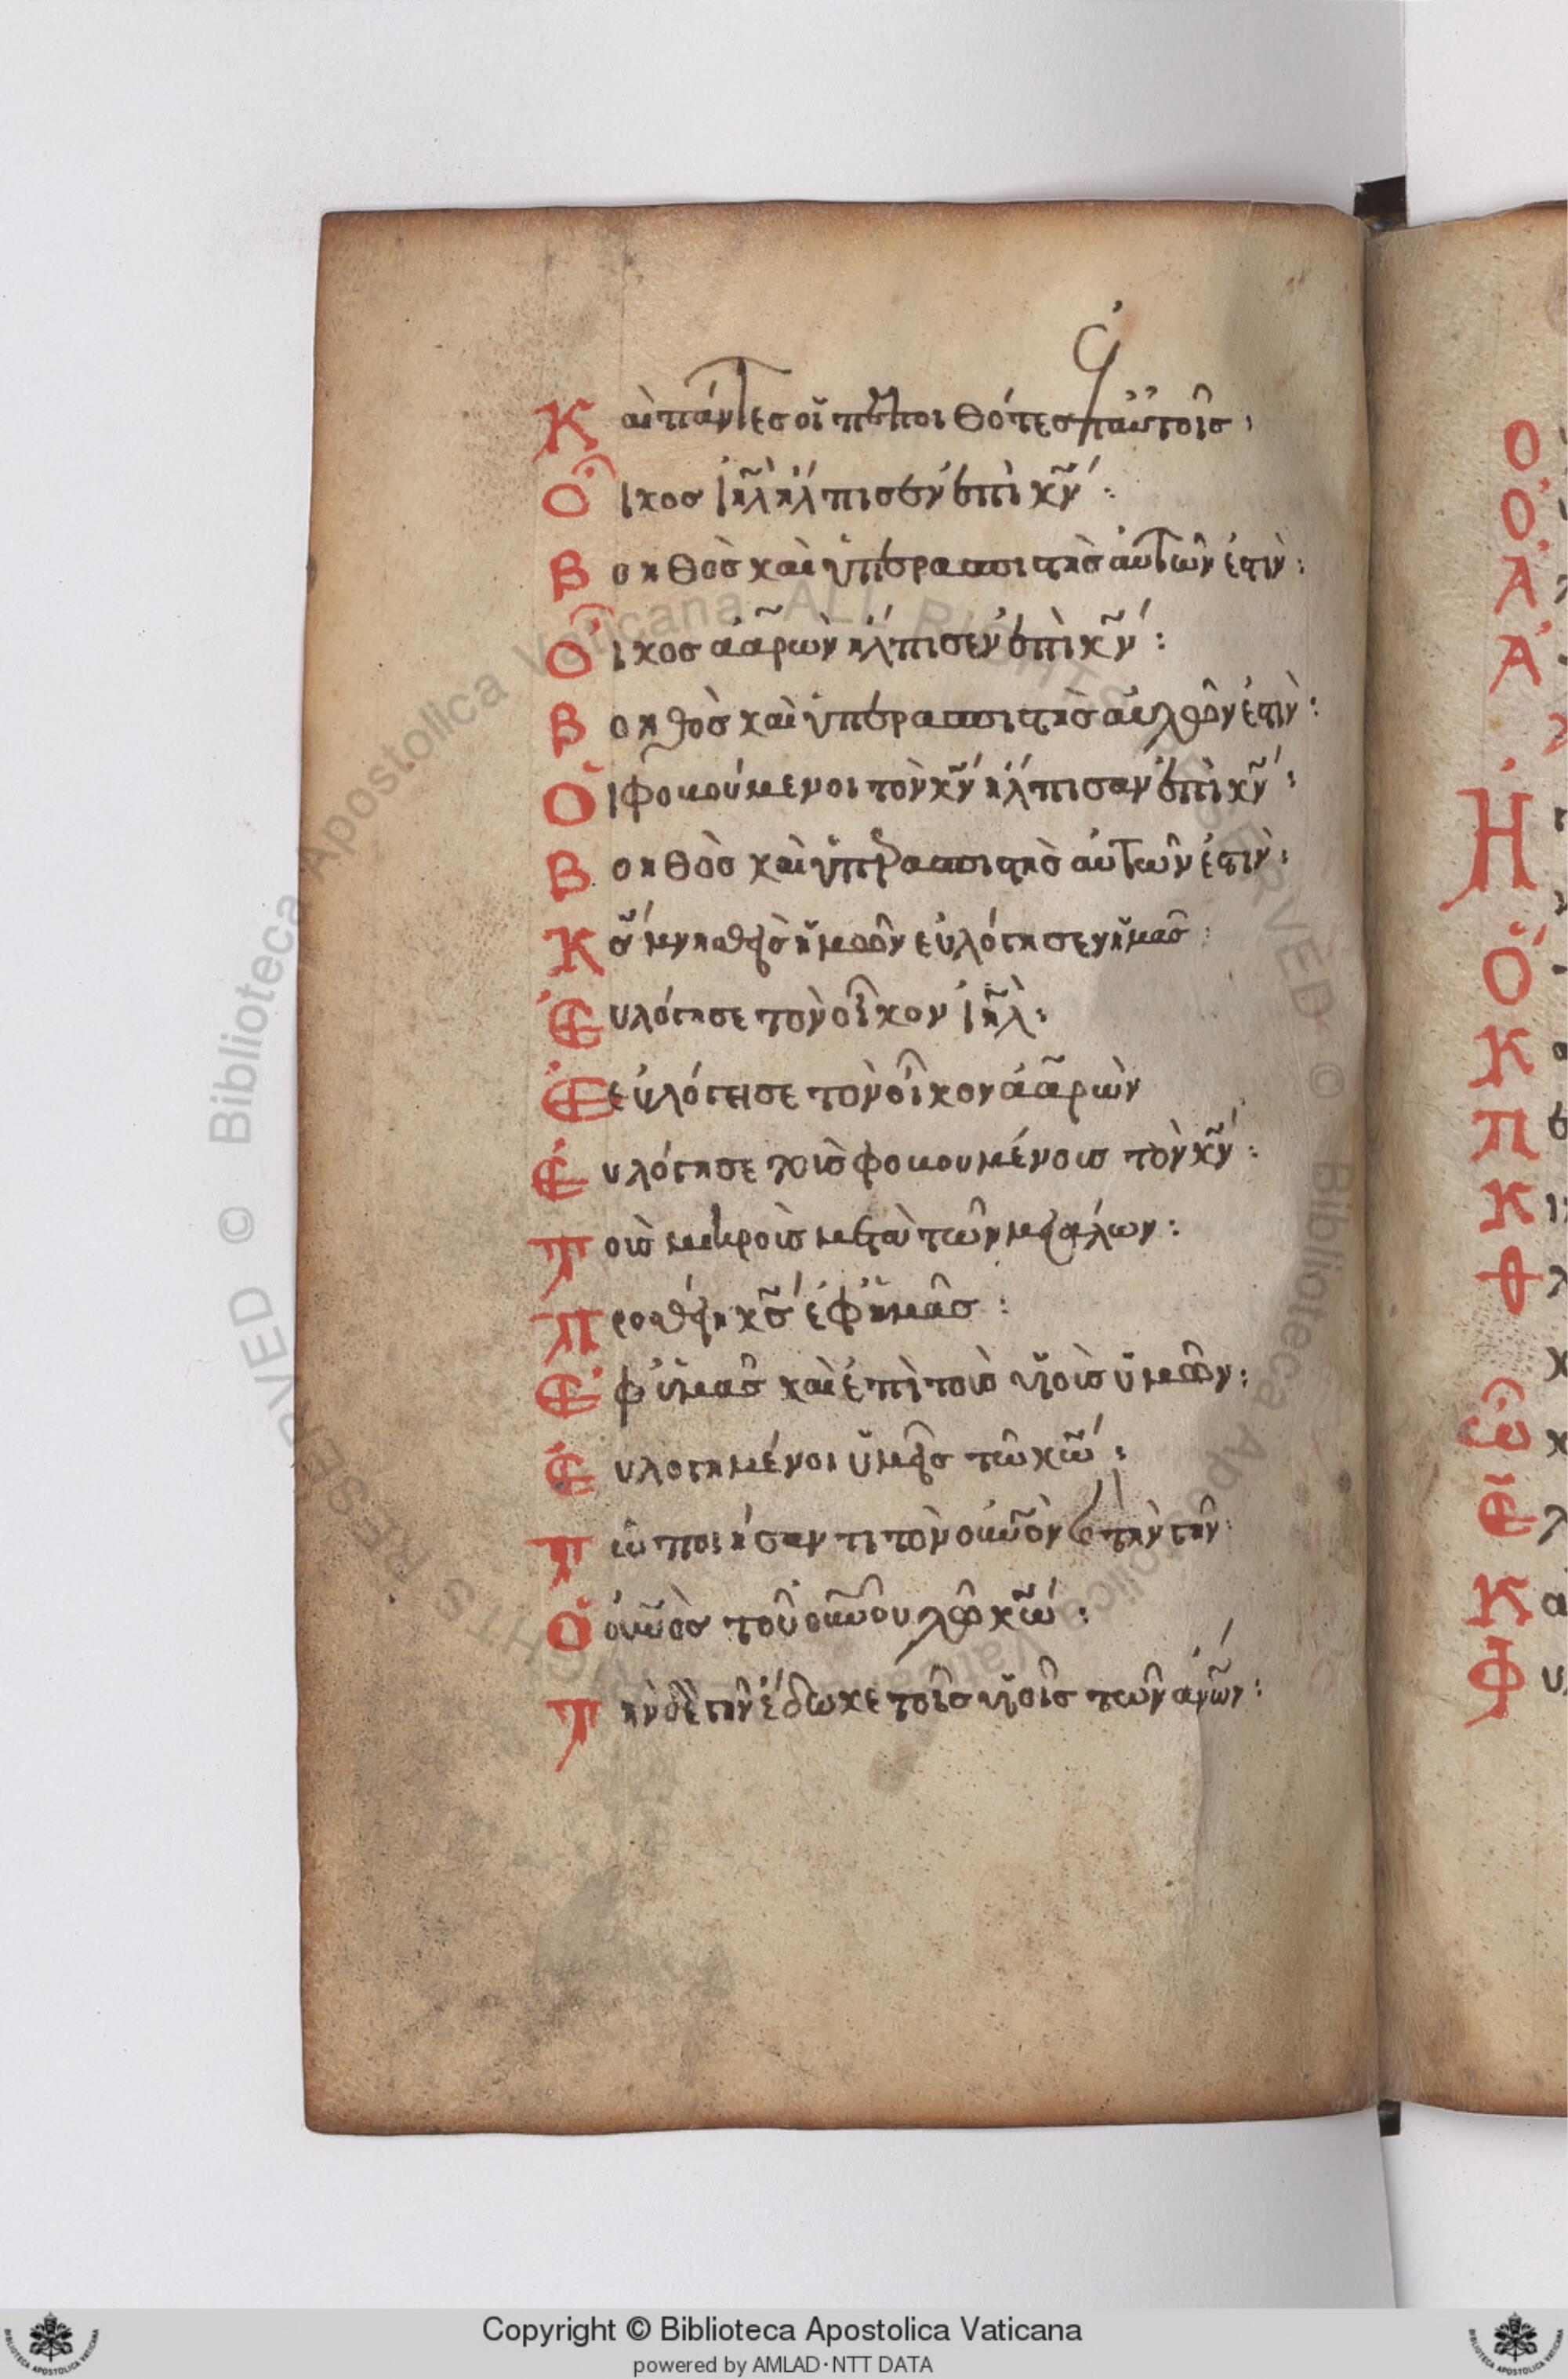 Καὶ πάντες οἱ πεποιθότες ἐπ αὐτοῖς·
Οἶκος ιῆλ ἤλπισεν ἐπὶ κν̄:
Βοηθὸς καὶ ὑπερασπιστὴς αὐτῶν ἐστὶν:
Οἶκος ἀαρὼν ἤλπισεν ἐπὶ κν̄:
Βοηθὸς καὶ ὑπερασπιστὴς αὐτῶν ἐστὶν:
Οἱ φοβούμενοι τὸν κν̄ ἤλπισαν ἐπὶ κν̄:
Βοηθὸς καὶ ὑπερασπιστὴς αὐτῶν ἐστὶν:
Κς̄ μνησθεὶς ἡμῶν εὐλόγησεν ἡμᾶς:
Εὐλόγησε τὸν οἶκον ιῆλ:
Ἐεὐλόγησε τὸν οἶκον ἀαρὼν
Εὐλόγησε τοὺς φοβουμένους τὸν κν̄:
Τοὺς μικροὺς μετὰ τῶν μεγάλων:
Προσθείη κς̄ ἐφ ἡμᾶς:
Ἐφ ὑμᾶς καὶ ἐπὶ τοὺς υἱοὺς ὑμῶν:
Εὐλογημένοι ὑμεῖς τῷ κω̄:
Τῷ ποιήσαντι τὸν οὐνον καὶ τὴν γῆν:
Ὁ οὐνος τοῦ οὐνου τῷ κω̄:
Τὴν δὲ γῆν ἔδωκε τοῖς υἱοῖς τῶν ἀνων:
Copyright © Biblioteca Apostolica Vaticana
powered by AMLAD·NTT DATA